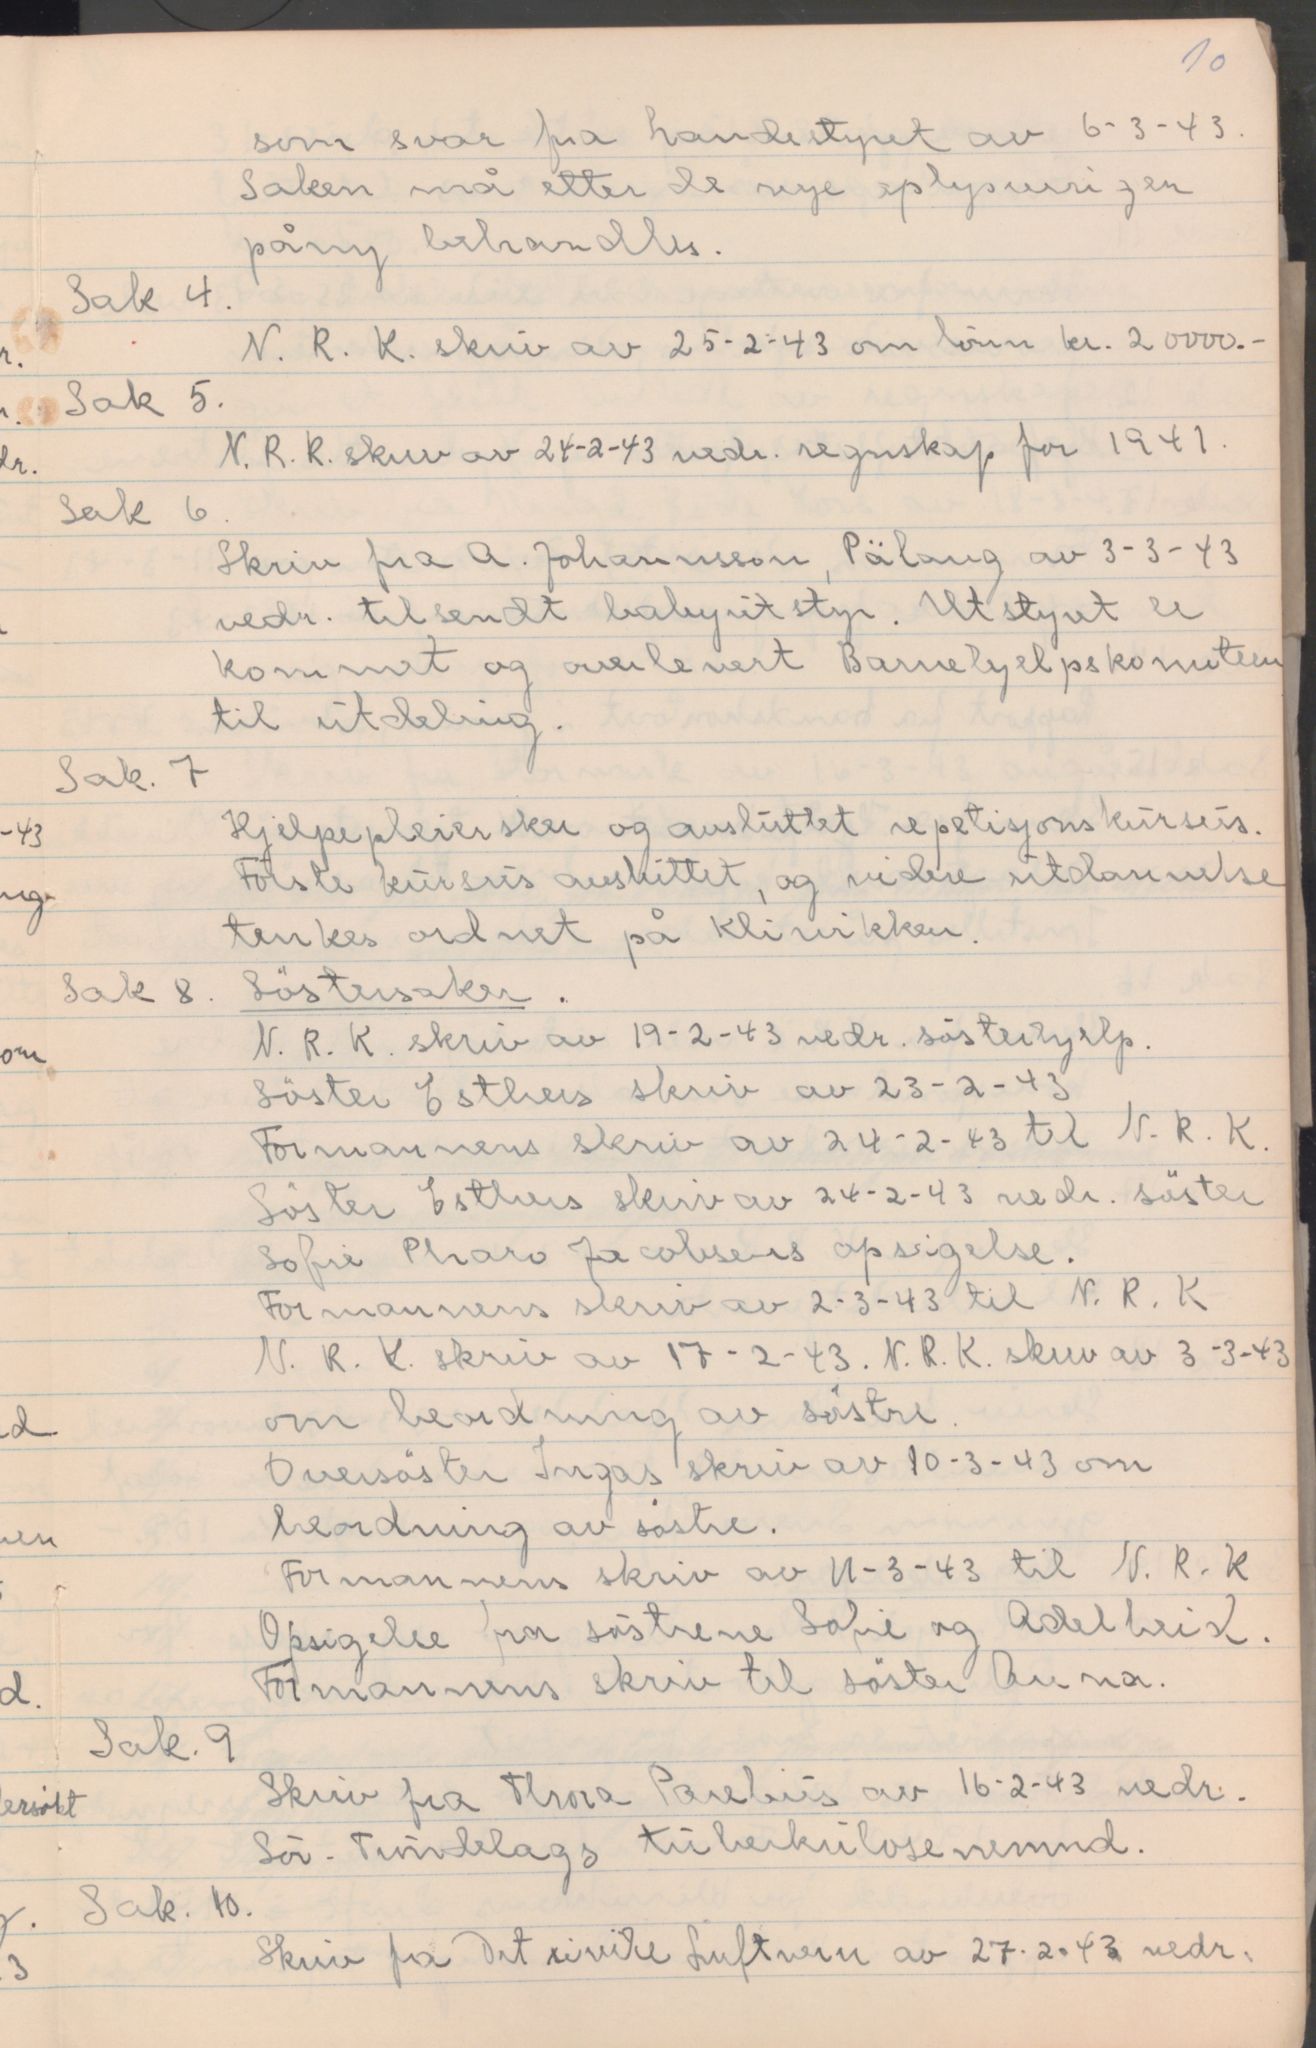 10
som svar fra handestyret av 6-3-43.
Saken må etter de nye oplysninger
påny behandles.
Sak 4.
N. R. K. skriv av 25-2-43 om lönn kr. 20000.-
Sak 5.
N. R. K. skriv av 24-2-43 vedr. regnskap for 1941.
Sak 6.
Skriv fra A. Johannsson, Pälang av 3-3-43
vedr. tilsendt babyutstyr. Utstyret er
kommet og overlevert Barnehjelpskomiteen
til utdeling.
Sak. 7
Hjelpepleiersker og avsluttet repetisjonskursus.
Förste kursus avsluttet, og videre utdannelse
tenkes ordnet på Klinikken.
Sak 8. Söstersaker.
N. R. K. skriv av 19-2-43 vedr. sösterhjelp.
Söster Esthers skriv av 23-2-43
Formannens skriv av 24-2-43 til N. R. K.
Söster Esthers skriv av 24-2-43 vedr. söster
Sofie Pharo Jacobsens opsigelse.
Formannens skriv av 2-3-43 til N. R. K
N. R. K. skriv av 17-2-43. N. R. K. skriv av 3-3-43
om beordning av söstre.
Oversöster Ingas skriv av 10-3-43 om
beordning av söstre.
Formannens skriv av 11-3-43 til N. R. K
Opsigelse fra söstrene Sofie og Adelheid.
Formannens skriv til söster Anna.
Sak. 9
Skriv fra Thora Parelius av 16-2-43 vedr.
Sör-Tröndelags tuberkulosenemnd.
Sak. 10.
Skriv fra Det sivile Luftvern av 27.2.43 vedr.